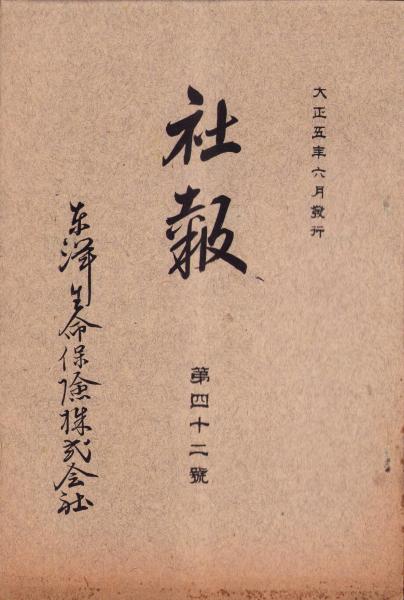 大正五年六月發行
社報
第四十二號
东洋生命保險株式会社